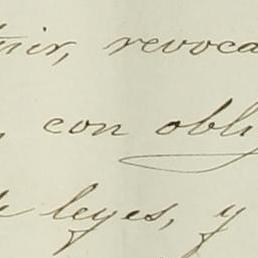 tuir, revoca
con obli
de leyes, y